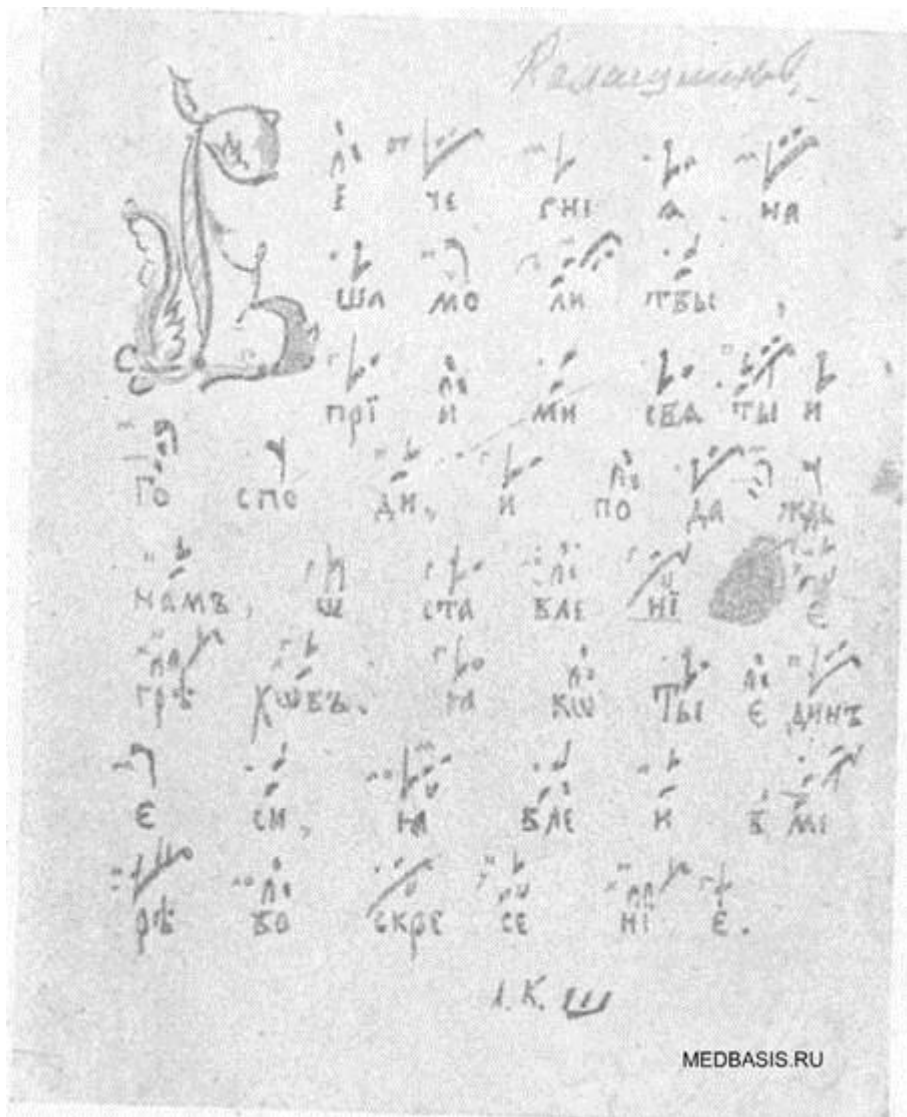 В е че рнї ѧ на
ша мо ли твы ,
прї и ми свѧ ты и
го спо ди, и по да ждь
намъ, ѡ ста вле нї є
грѣ хѡвъ. ꙗ кѡ ты є динъ
є си, ꙗ вле и в мї
рѣ во скре се нї є.
Л. К. Ш
MEDBASIS.RU